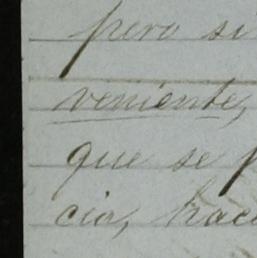 pero si
veniente,
que se p
cia, hace